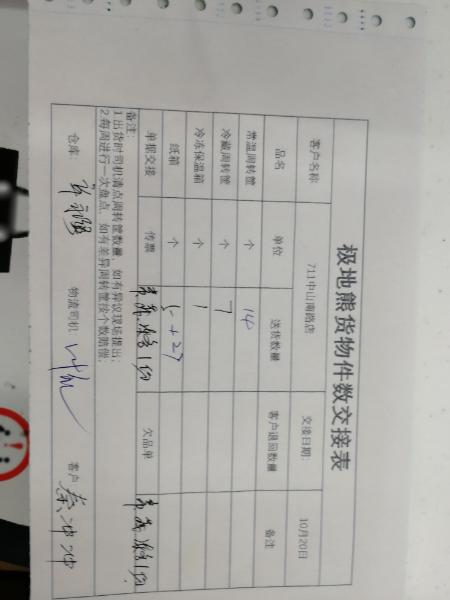 极地熊货物件数交接表
客户名称 711中山南路店 交接日期: 10月20日
品名 单位 送货数量 客户退回数量 备注
常温周转筐 个 14
冷藏周转筐 个 7
冷冻保温箱 个 1
纸箱 个 5+27
单据交接 传票 1份 欠品单 1份
备注:
1.出货时司机清点周转筐数量，如有异议现场提出;
2.每周进行一次盘点，如有差异周转筐按个数赔偿;
仓库: 物流司机: 客户: 秦冲冲